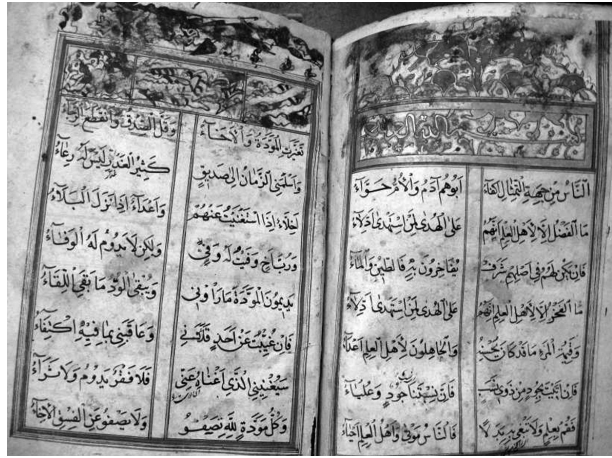 الناس من جهة التمثال اكفاء ابوهم ادم والام حواء
ما الفضل الا لاهل العلم انهم على الهدى لمن استهدى ادلاء
فان يكن لهم في اصلهم شرف يفاخرون به فالطين والماء
ما الفخر الا لاهل العلم انهم على الهدى لمن استهدى ادلاء
وقيمة المرء ما قد كان يحسنه والجاهلون لاهل العلم اعداء
فان اتيت بجود من ذوي نسب فان نسبتنا جود وعلياء
فقم بعلم ولا تبغي به بدلا فالناس موتى واهل العلم احياء
تغيرت المودة والاخاء وقل الصدق وانقطع الرجاء
واسلمني الزمان الى صديق كثير الغدر ليس له رعاء
اخلاء اذا استغنيت عنهم واعداء اذا نزل البلاء
ورب اخ وفيت له وفي ولكن لا يدوم له الوفاء
يديمون المودة ما راوني ويبقى الود ما بقي اللقاء
فان غيبت عن احد قلاني وعاقبني بما فيه اكتفاء
سيغنيني الذي اغناه عني فلا فقر يدوم ولا ثراء
وكل مودة لله تصفو ولا يصفو عن الفسق الاخاء